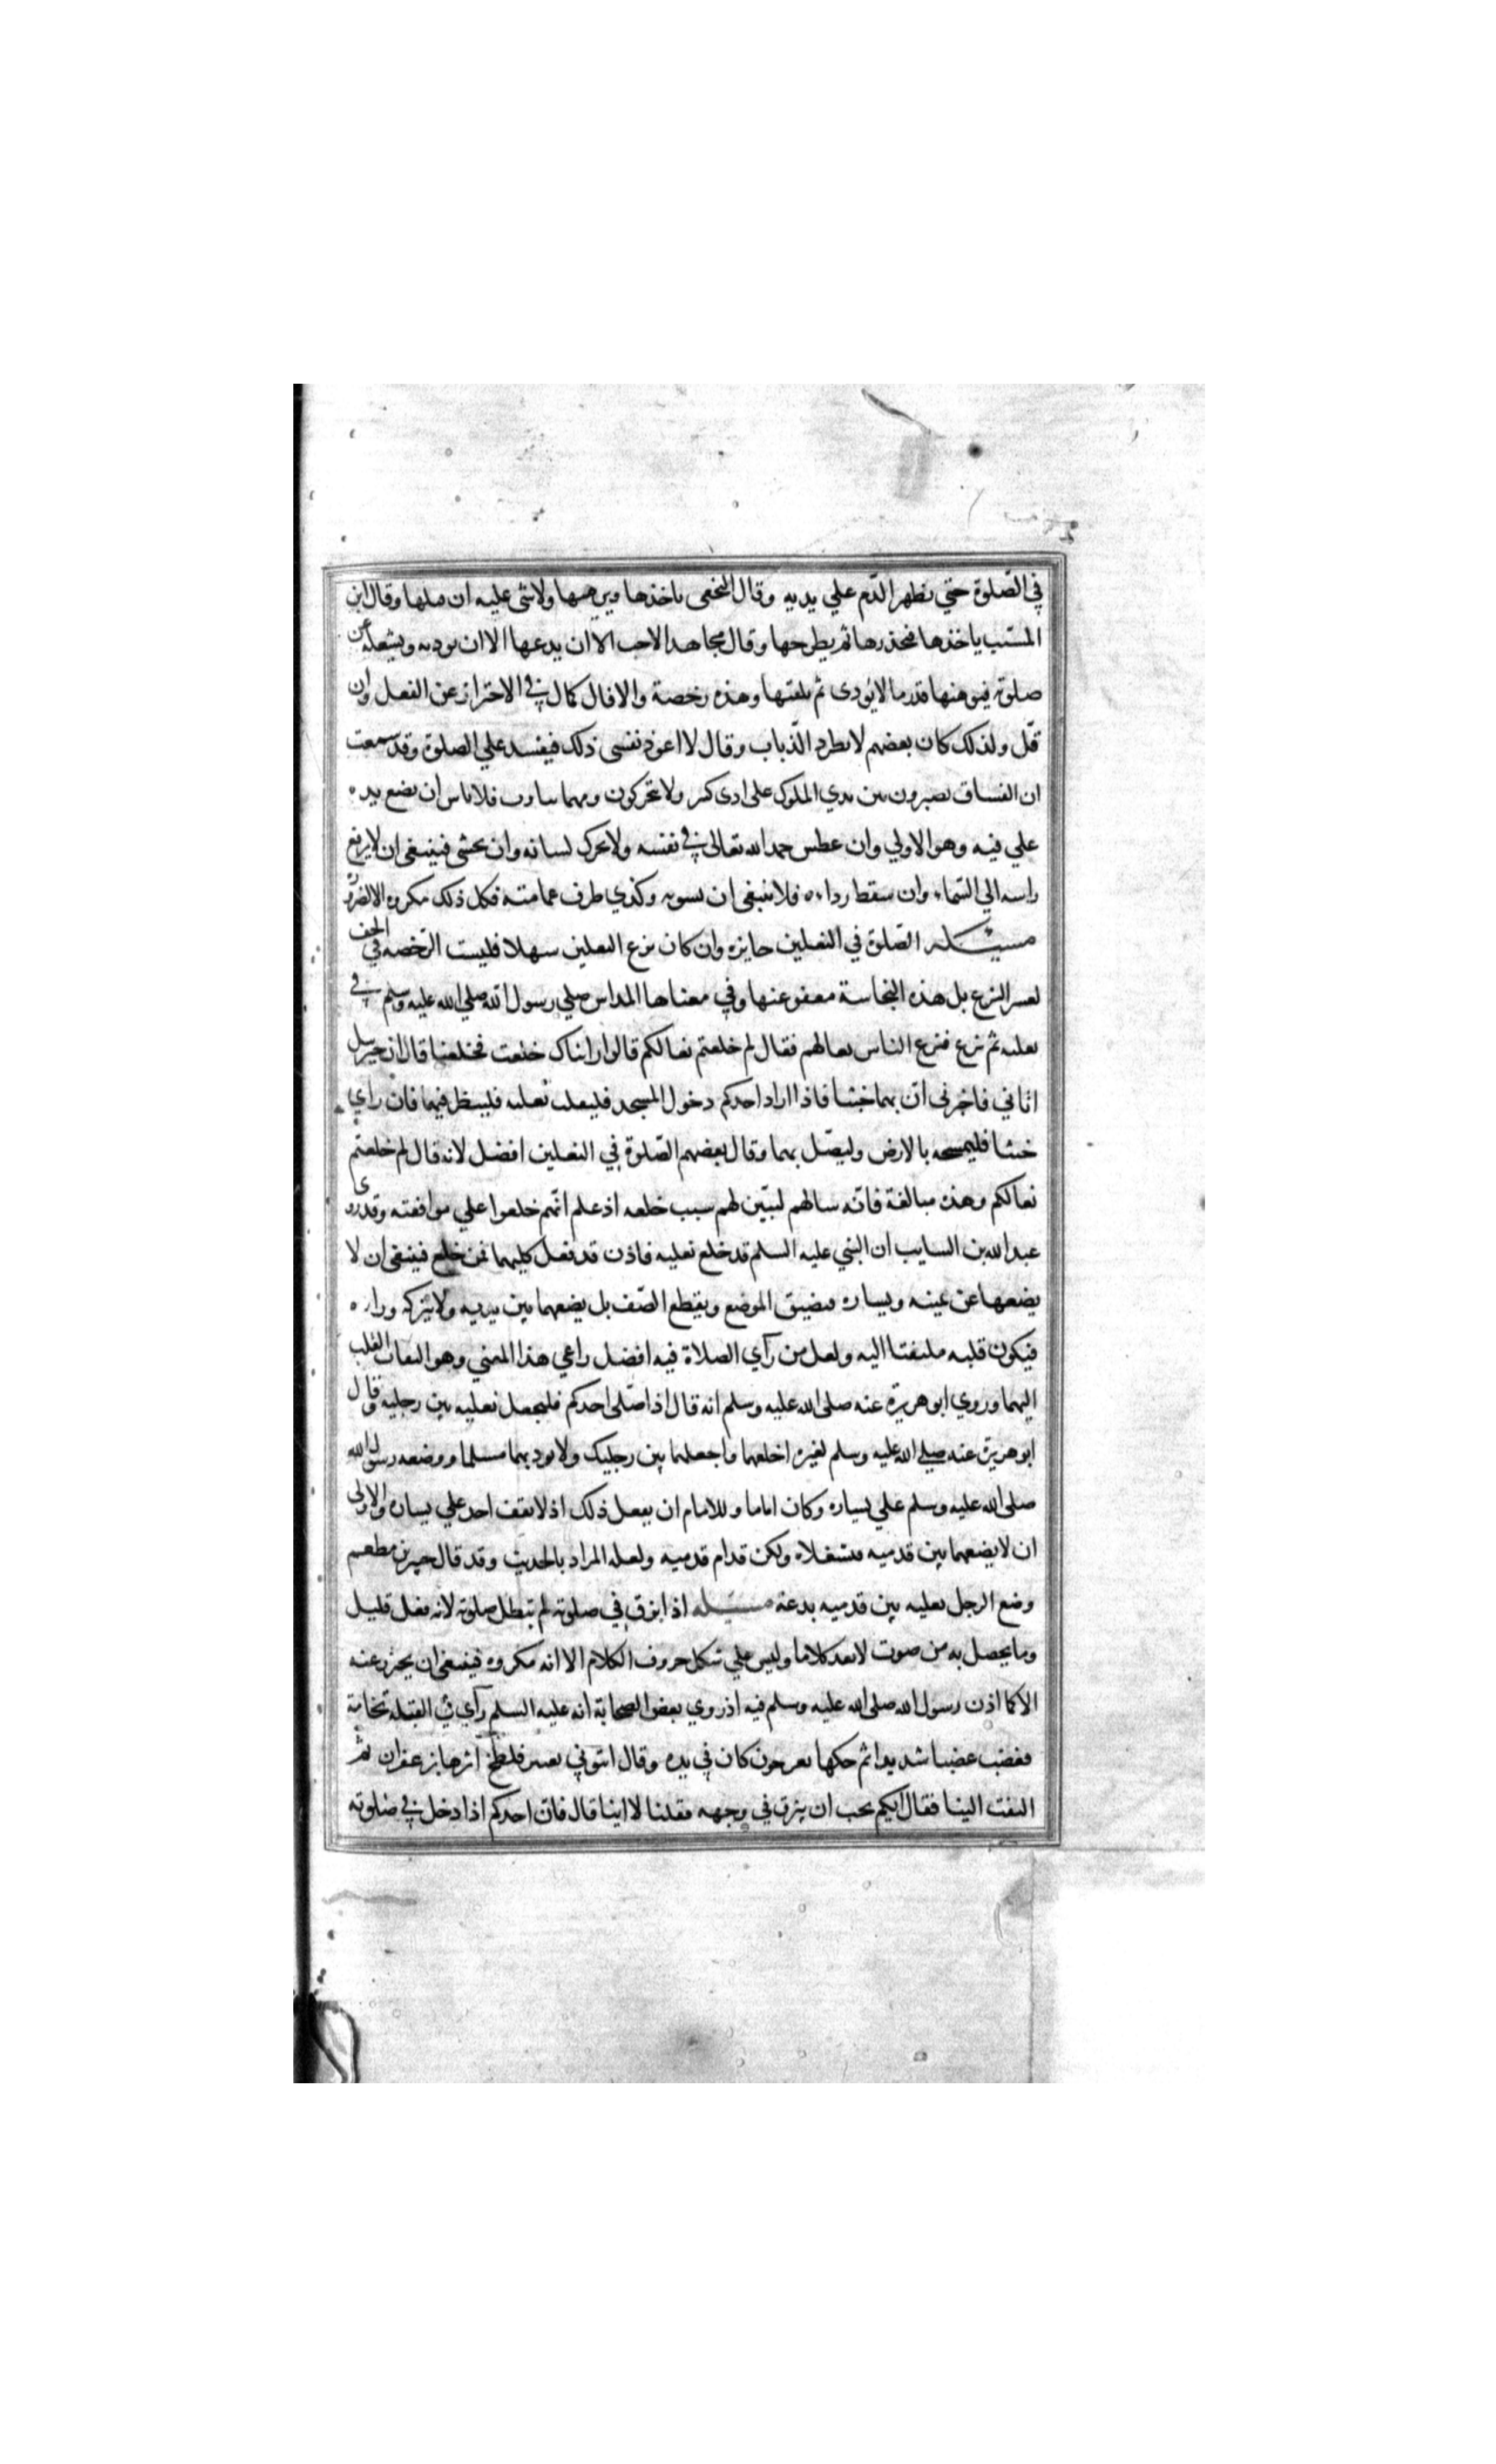 في الصّلوة حتي يظهر الدّم علي يديه وقال النخعي ياخذها ويوهنها ولا شي عليه ان قتلها وقال ابن
المسّيب ياخذها فيخدرها ثم يطرحها وقال مجاهد الاحب الا ان يدعها الا ان توديه وتشغله عن
صلوته فيوهنها قدر ما لا يؤدى ثم يلقيها وهذه رخصة والا فالكمال في الاحتراز عن الفعل وان
قلّ ولذلك كان بعضهم لا يطرد الذّباب وقال لا اعود نفسى ذلك فيفسد علي الصلوة وقد سمعت
ان الفساق يصبرون بين يدي الملوك على ادى كثير ولا يتحركون ومهما تثاوب فلا باس ان يضع يده
علي فيه وهو الاولي وان عطس حمد الله تعالى في نفسه ولا يحرك لسانه وان تجشى فينبغى ان لا يرفع
راسه الي السّماء وان سقط رداءه فلا ينبغى ان يسويه وكذي طرف عمامته فكل ذلك مكروه الا لضرورة
مسئلة الصّلوة في النعلين جايزه وان كان نزع النعلين سهلا فليست الرّخصه في الخف
لعسر النزع بل هذه النجاسة معفو عنها وفي معناها المداس صلي رسول الله صلي الله عليه وسلم في
نعليه ثم نزع فنزع الناس نعالهم فقال لم خلعتم نعالكم قالوا رايناك خلعت فخلعنا قال ان جبرئيل
اتاني فاخبرنى ان بهما خبثا فاذا اراد احدكم دخول المسجد فليقلب نعليه فلينظر فيهما فان راي
خبثا فليمسحه بالارض وليصّل بهما وقال بعضهم الصّلوة في النعلين افضل لانه قال لم خلعتم
نعالكم وهذه مبالغة فانّه سالهم ليبّين لهم سبب خلعه اذ علم انّهم خلعوا علي موافقته وقد روى
عبد الله بن السايب ان النبي عليه السلم قد خلع نعليه فاذن قد فعل كليهما فمن خلع فينبغى ان لا
يضعهما عن يمينه ويساره فيضيق الموضع ويقطع الصّف بل يضعهما بين يديه ولا يتركه وراءه
فيكون قلبه ملتفتا اليه ولعل من رآي الصلاة فيه افضل راعي هذا المعني وهو التفات القلب
اليهما وروي ابو هريرة عنه صلى الله عليه وسلم انه قال اذا صلّى احدكم فليجعل نعليه بين رجليه وقال
ابو هريرة عنه صلي الله عليه وسلم لغيره اخلعهما واجعلهما بين رجليك ولا تود بهما مسلما ووضعه رسول الله
صلى الله عليه وسلم علي يساره وكان اماما وللامام ان يفعل ذلك اذ لا يقف احد علي يساره والاولى
ان لا يضعهما بين قدميه فتشغلاه ولكن قدام قدميه ولعله المراد بالحديث وقد قال جبير بن مطعم
وضع الرجل نعليه بين قدميه بدعة مسئله اذا بزق في صلوته لم تبطل صلوته لانه فعل قليل
وما يحصل به من صوت لا يعد كلاما وليس علي شكل حروف الكلام الا انه مكروه فينبغى ان يحترز عنه
الا كما اذن رسول الله صلى الله عليه وسلم فيه اذ روي بعض الصحابة انه عليه السلم رآي في القبلة نخامة
فغضب غضبا شديدا ثم حكها بعرجون كان في يده وقال ايتوني بعبير فلطخ اثرها بزعفران ثم
التفت الينا فقال ايكم يحب ان يبزق في وجهه فقلنا لا اينا قال فان احدكم اذا دخل في صلوته